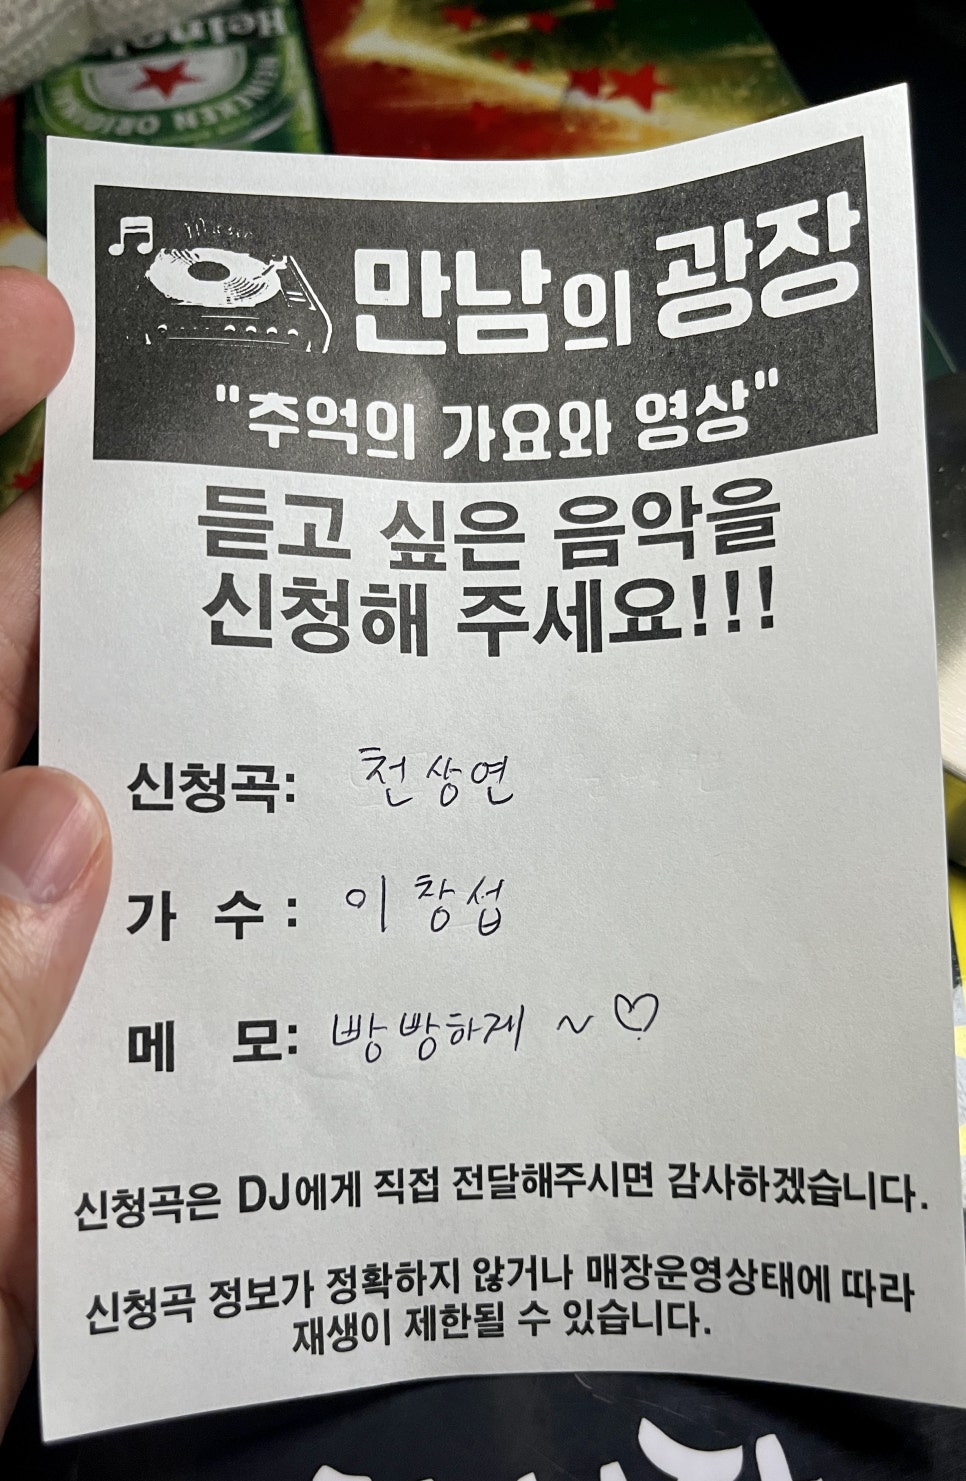 Heineken
HEINEKEN ORIGINAL
Music
만남의 광장
"추억의 가요와 영상"
듣고 싶은 음악을
신청해 주세요!!!
신청곡: 천상연
가 수 : 이창섭
메 모: 빵빵하게 ~ ♡
신청곡은 DJ에게 직접 전달해주시면 감사하겠습니다.
신청곡 정보가 정확하지 않거나 매장운영상태에 따라
재생이 제한될 수 있습니다.